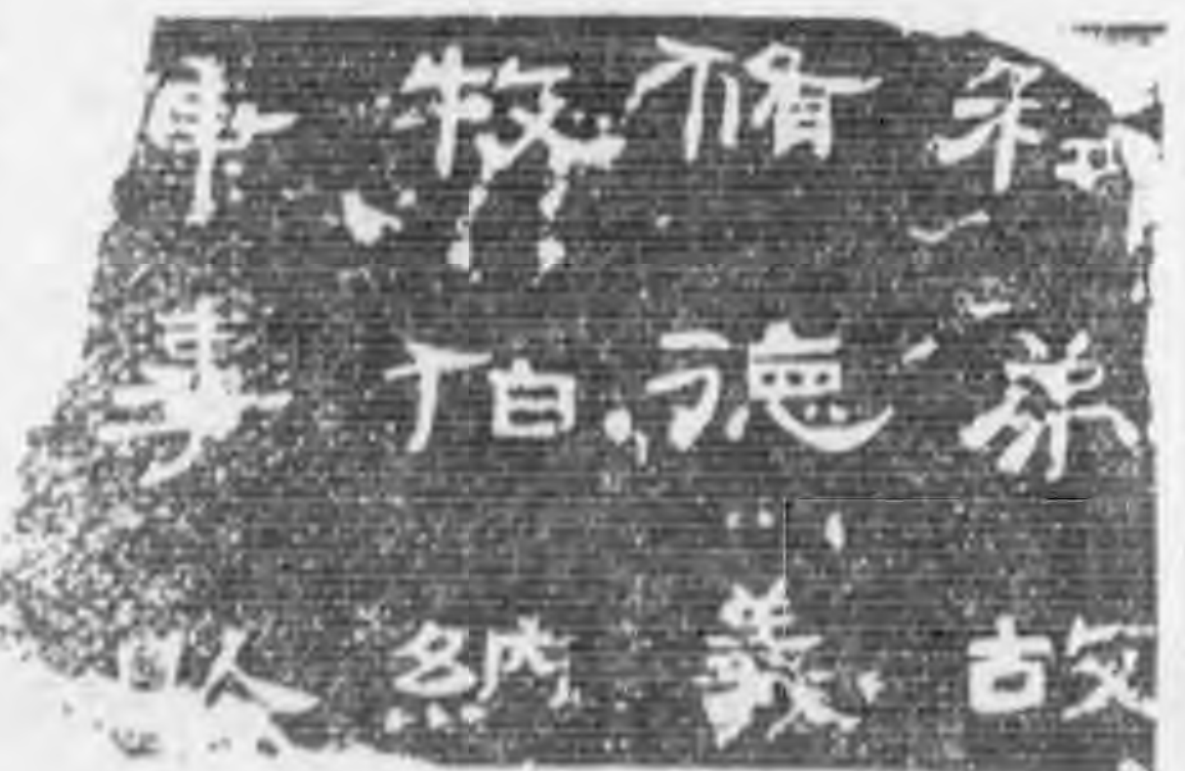 和弟故
脩德義
牧伯納
軍事以